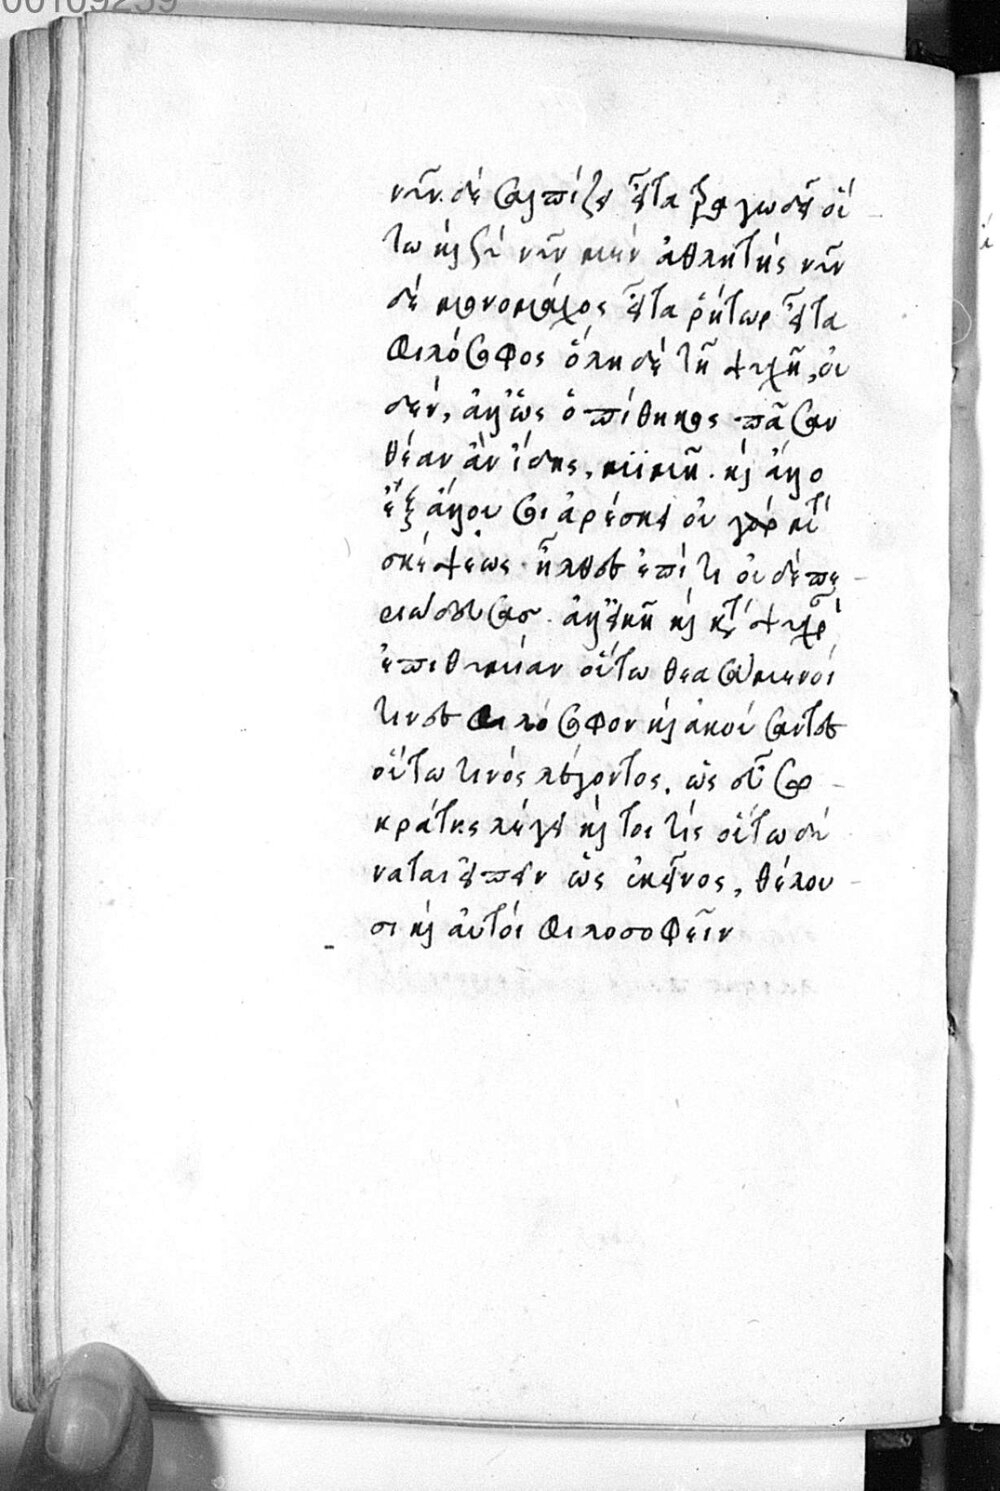 00109259
νῦν δὲ σαλπίζει εἶτα τραγωδεῖ οὕ-
τω καὶ σὺ νῦν μὲν ἀθλητὴς νῦν
δὲ μονομάχος εἶτα ῥήτωρ εἶτα
φιλόσοφος ὅλη δὲ τῆ ψυχῆ, οὐ
δέν, ἀλλ' ὡς ὁ πίθηκος πᾶσαν
θέαν ἂν ἴδης, μιμῆ. καὶ ἄλλο
ἐξ ἄλλου σοι ἀρέσκει οὐ γὰρ μετὰ
σκέψεως ἦλθες ἐπί τι οὐδὲ πε-
ριοδεύσας. ἀλλ' εἰκῆ καὶ κατὰ ψυχρὰν
ἐπιθυμίαν οὕτω θεασάμενοί
τινες φιλόσοφον καὶ ἀκούσαντες
οὕτω τινὸς λέγοντος, ὡς εὖ Σω-
κράτης λέγει καί τοι τίς οὕτω δύ
ναται εἰπεῖν ὡς ἐκεῖνος, θέλου-
σι καὶ αὐτοὶ φιλοσοφεῖν